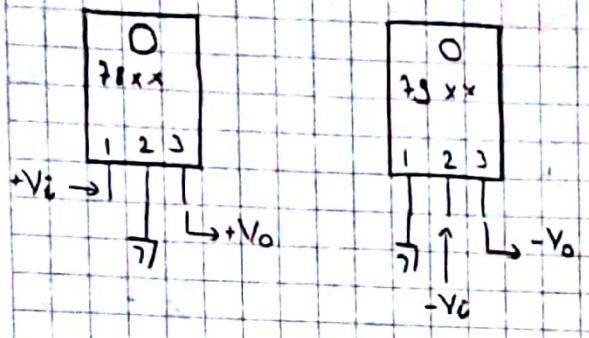 78xx
1 2 3
+Vi → → +Vo
79xx
1 2 3
→ -Vo
-Vi